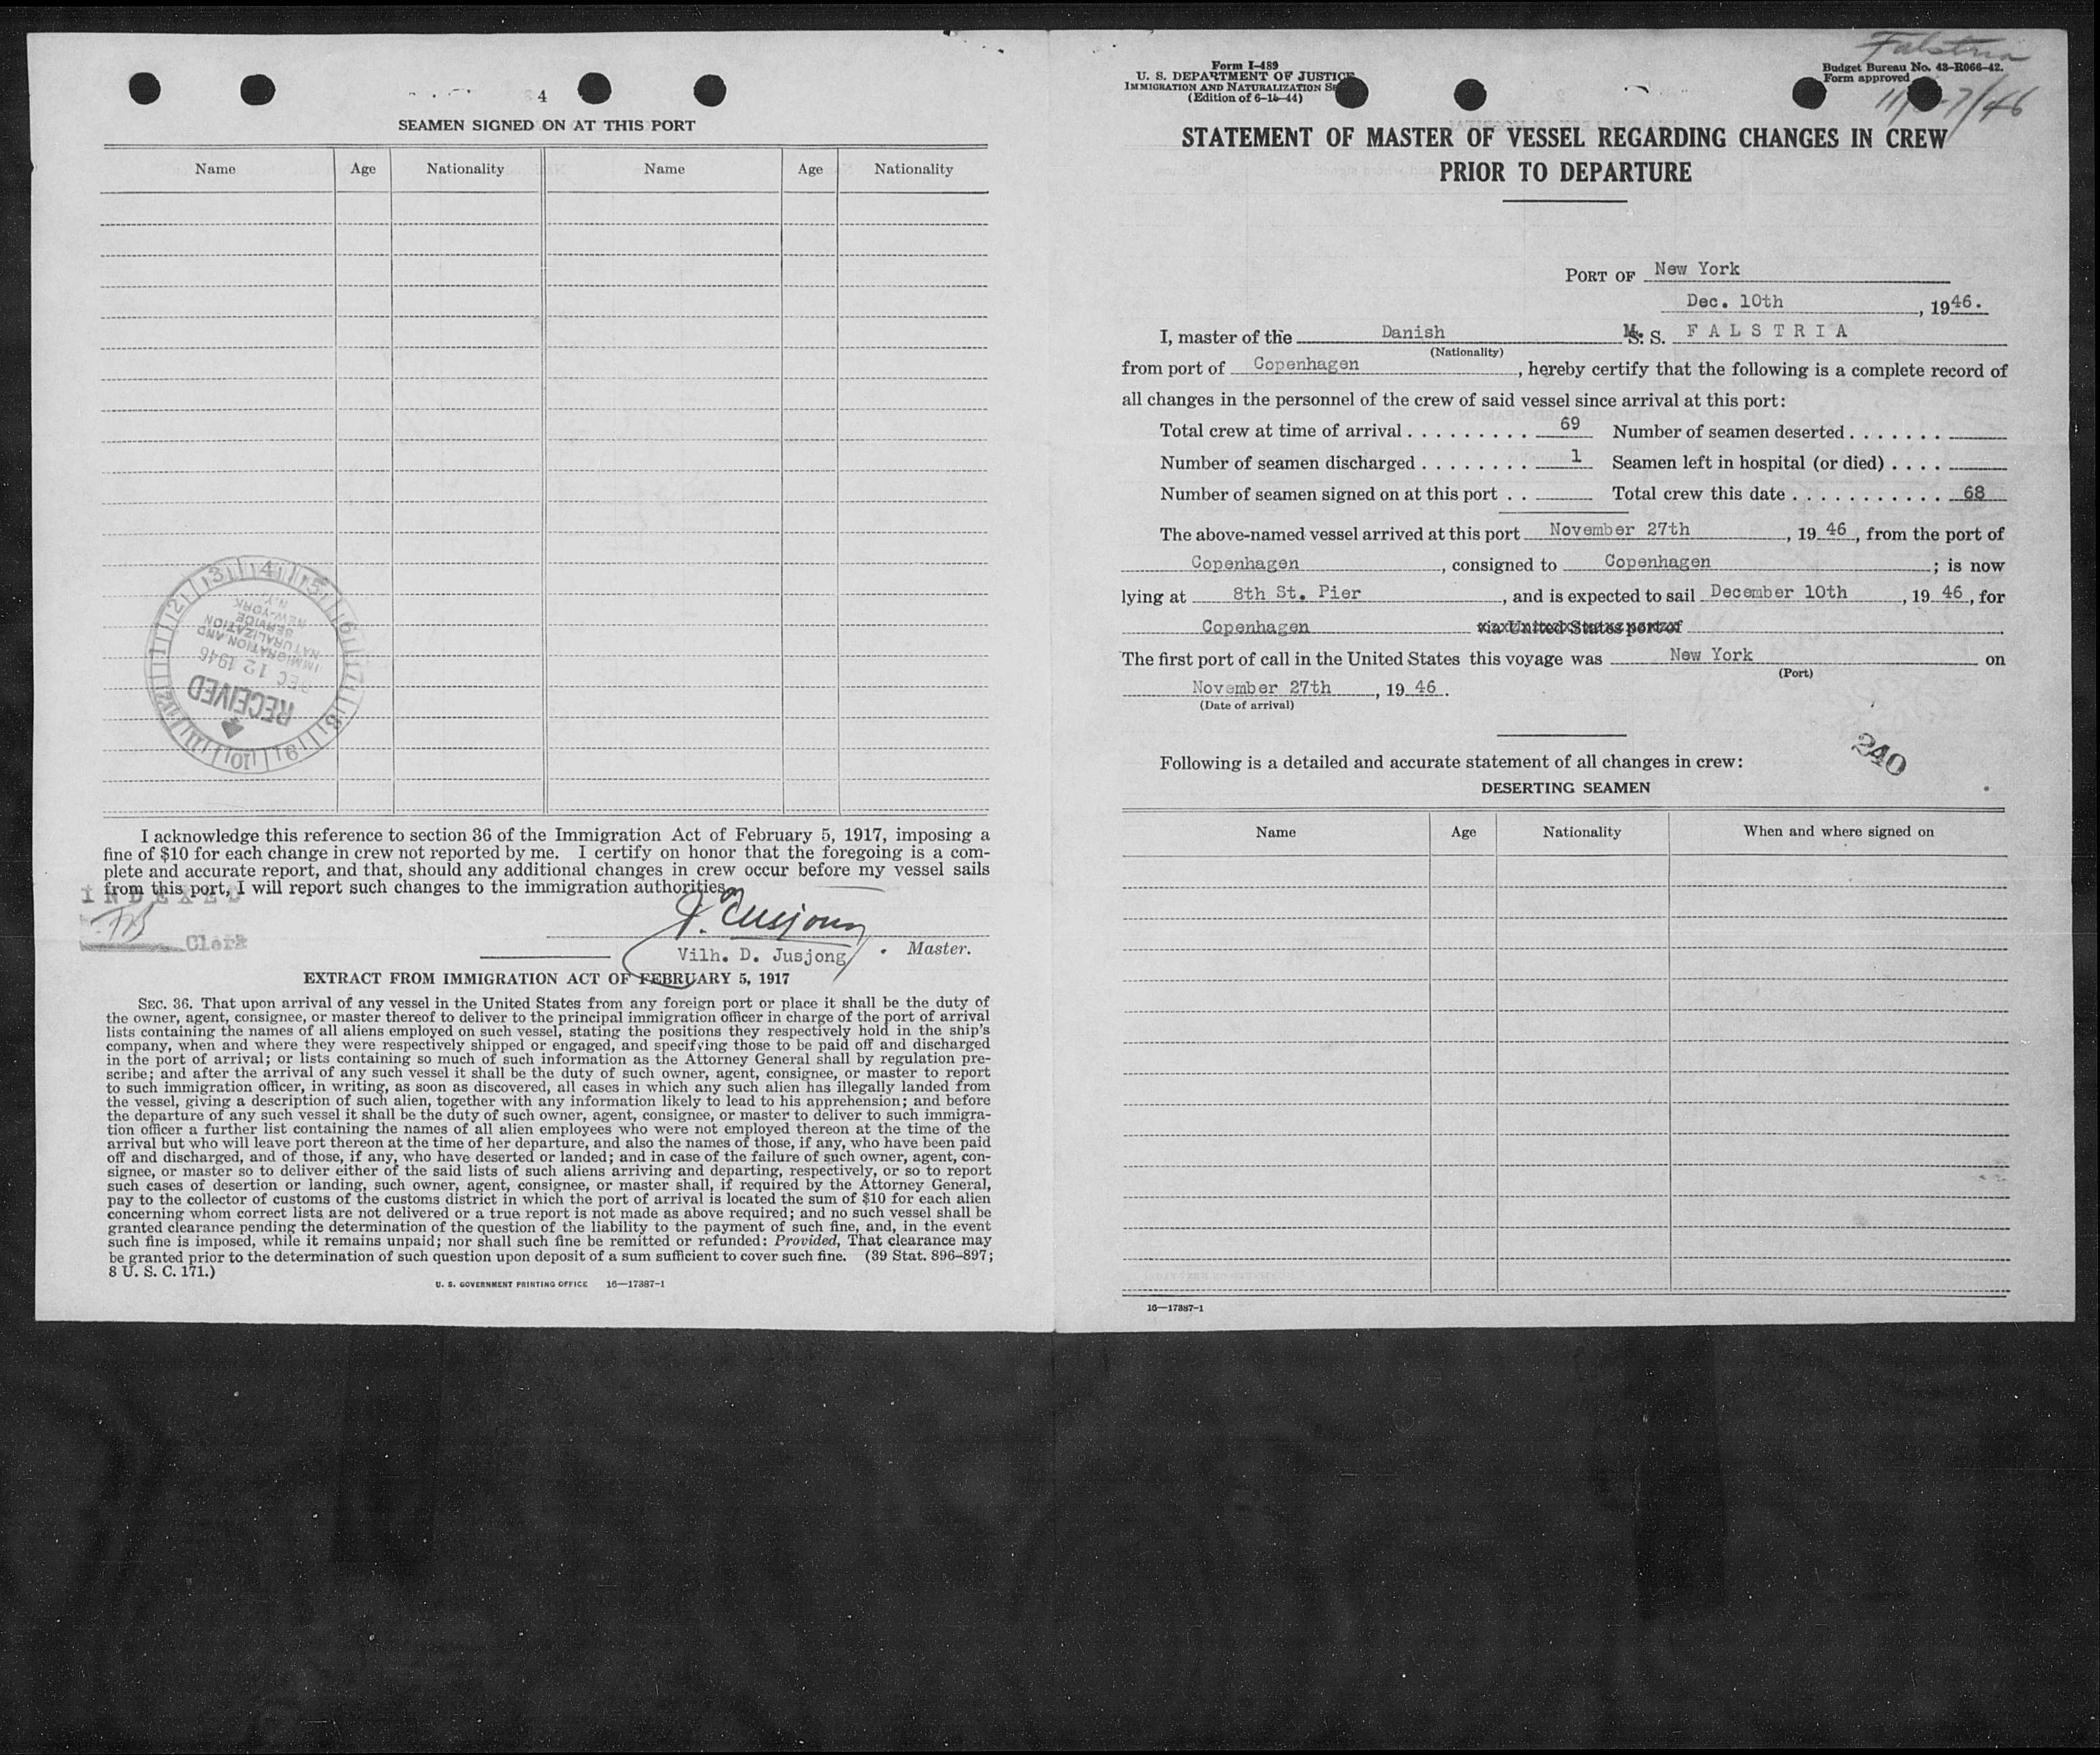 4
SEAMEN SIGNED ON AT THIS PORT
Name Age Nationality Name Age Nationality
RECEIVED
DEC 12 1946
IMMIGRATION AND
NATURALIZATION
SERVICE
NEW YORK
N.Y.
I acknowledge this reference to section 36 of the Immigration Act of February 5, 1917, imposing a
fine of $10 for each change in crew not reported by me. I certify on honor that the foregoing is a com-
plete and accurate report, and that, should any additional changes in crew occur before my vessel sails
from this port, I will report such changes to the immigration authorities.
INDEXED
Clerk
Vilh. D. Jusjong. Master.
EXTRACT FROM IMMIGRATION ACT OF FEBRUARY 5, 1917
SEC. 36. That upon arrival of any vessel in the United States from any foreign port or place it shall be the duty of
the owner, agent, consignee, or master thereof to deliver to the principal immigration officer in charge of the port of arrival
lists containing the names of all aliens employed on such vessel, stating the positions they respectively hold in the ship's
company, when and where they were respectively shipped or engaged, and specifying those to be paid off and discharged
in the port of arrival; or lists containing so much of such information as the Attorney General shall by regulation pre-
scribe; and after the arrival of any such vessel it shall be the duty of such owner, agent, consignee, or master to report
to such immigration officer, in writing, as soon as discovered, all cases in which any such alien has illegally landed from
the vessel, giving a description of such alien, together with any information likely to lead to his apprehension; and before
the departure of any such vessel it shall be the duty of such owner, agent, consignee, or master to deliver to such immigra-
tion officer a further list containing the names of all alien employees who were not employed thereon at the time of the
arrival but who will leave port thereon at the time of her departure, and also the names of those, if any, who have been paid
off and discharged, and of those, if any, who have deserted or landed; and in case of the failure of such owner, agent, con-
signee, or master so to deliver either of the said lists of such aliens arriving and departing, respectively, or so to report
such cases of desertion or landing, such owner, agent, consignee, or master shall, if required by the Attorney General,
pay to the collector of customs of the customs district in which the port of arrival is located the sum of $10 for each alien
concerning whom correct lists are not delivered or a true report is not made as above required; and no such vessel shall be
granted clearance pending the determination of the question of the liability to the payment of such fine, and, in the event
such fine is imposed, while it remains unpaid; nor shall such fine be remitted or refunded: Provided, That clearance may
be granted prior to the determination of such question upon deposit of a sum sufficient to cover such fine. (39 Stat. 896–897;
8 U. S. C. 171.)
U. S. GOVERNMENT PRINTING OFFICE 16—17387-1
Falstria
Form I-489
U. S. DEPARTMENT OF JUSTICE
IMMIGRATION AND NATURALIZATION
(Edition of 6-15-44)
Budget Bureau No. 43-R066-42.
Form approved
STATEMENT OF MASTER OF VESSEL REGARDING CHANGES IN CREW
PRIOR TO DEPARTURE
PORT OF New York
Dec. 10th, 1946.
I, master of the Danish M. S. FALSTRIA
(Nationality)
from port of Copenhagen, hereby certify that the following is a complete record of
all changes in the personnel of the crew of said vessel since arrival at this port:
Total crew at time of arrival . . . . . . . . . 69 Number of seamen deserted . . . . . . .
Number of seamen discharged . . . . . . . . 1 Seamen left in hospital (or died) . . . .
Number of seamen signed on at this port . . Total crew this date . . . . . . . . . . . 68
The above-named vessel arrived at this port November 27th, 19 46, from the port of
Copenhagen, consigned to Copenhagen; is now
lying at 8th St. Pier, and is expected to sail December 10th, 19 46, for
Copenhagen via United States port of
The first port of call in the United States this voyage was New York on
(Port)
November 27th, 19 46.
(Date of arrival)
240
Following is a detailed and accurate statement of all changes in crew:
DESERTING SEAMEN
Name Age Nationality When and where signed on
16—17387-1